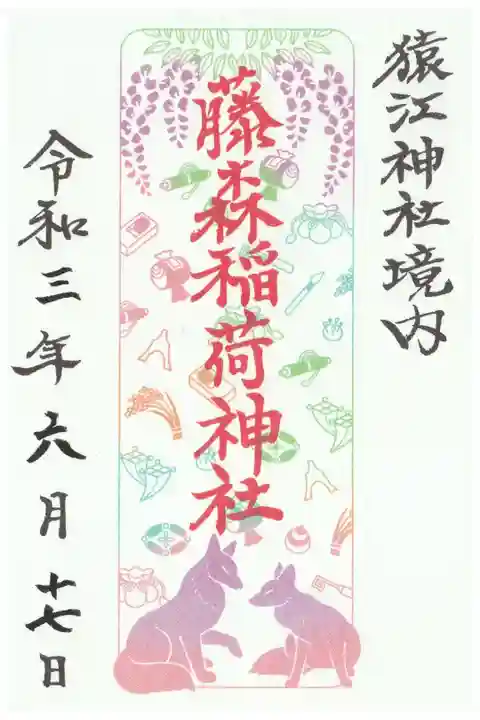 猿江神社境内
藤森稲荷神社
令和三年六月十七日